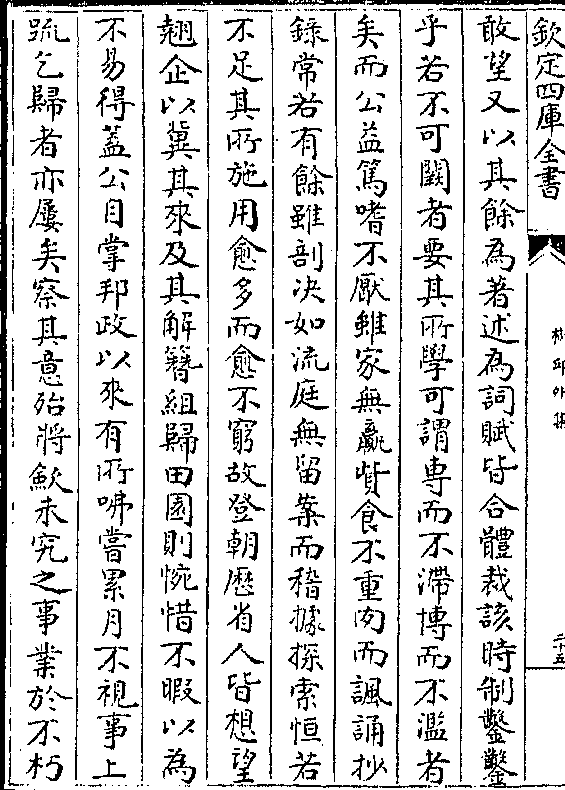 欽定四庫全書
敢望又以其餘為著述為詞賦皆合體裁該時制鑿鑿
乎若不可闕者要其所學可謂専而不滯博而不濫者
矣而公益篤嗜不厭雖家無贏貲食不重肉而諷誦抄
錄常若有餘雖剖决如流庭無留案而稽據探索恒若
不足其所施用愈多而愈不窮故登朝歴省人皆想望
翹企以冀其來及其解簪組歸田園則惋惜不暇以為
不易得蓋公自掌邦政以來有所咈嘗累月不視事上
䟽乞歸者亦屢矣察其意殆將歛未究之事業於不朽
二十五